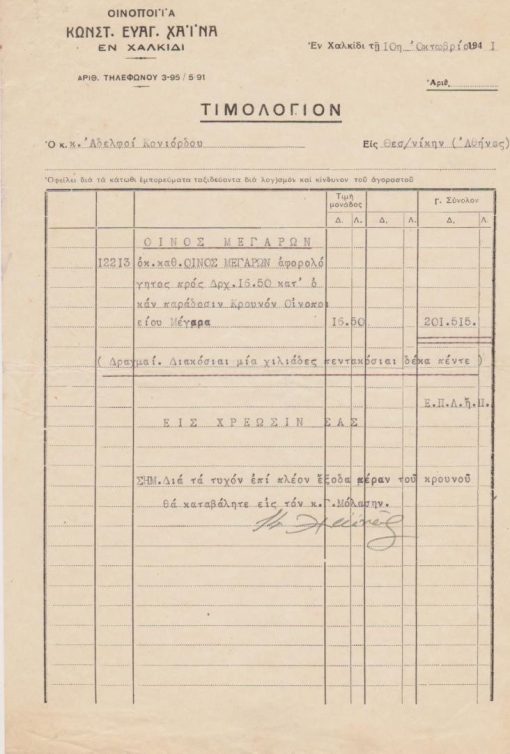 ΟΙΝΟΠΟΙΪΑ
ΚΩΝΣΤ. ΕΥΑΓ. ΧΑΪΝΑ
ΕΝ ΧΑΛΚΙΔΙ
ΑΡΙΘ. ΤΗΛΕΦΩΝΟΥ 3-95 / 5 91
Ἐν Χαλκίδι τῇ 10η Ὀκτωβρίο 1941
Ἀριθ.
ΤΙΜΟΛΟΓΙΟΝ
Ὁ κ.κ. Ἀδελφοί Κονιόρδου Εἰς Θεσ/νίκην (Ἀθήνας)
Ὀφείλει διὰ τὰ κάτωθι ἐμπορεύματα ταξιδεύοντα διὰ λογ)σμὸν καὶ κίνδυνον τοῦ ἀγοραστοῦ
Τιμὴ μονάδος Γ. Σύνολον
Δ. Λ. Δ. Λ. Δ. Λ.
ΟΙΝΟΣ ΜΕΓΑΡΩΝ
12213 ὀκ.καθ.ΟΙΝΟΣ ΜΕΓΑΡΩΝ ἀφορολό
γητος πρός Δρχ.16.50 κατ' ὀ
κάν παράδοσιν Κρουνόν Οἰνοποι
είου Μέγαρα 16.50 201.515.
( Δραχμαί. Διακόσιαι μία χιλιάδες πεντακόσιαι δέκα πέντε )
Ε.Π.Λ.ἤ.Π.
ΕΙΣ ΧΡΕΩΣΙΝ ΣΑΣ
ΣΗΜ.Διά τά τυχόν ἐπί πλέον ἔξοδα πέραν τοῦ κρουνοῦ
θά καταβάλητε εἰς τόν κ.Γ.Μόλασην.